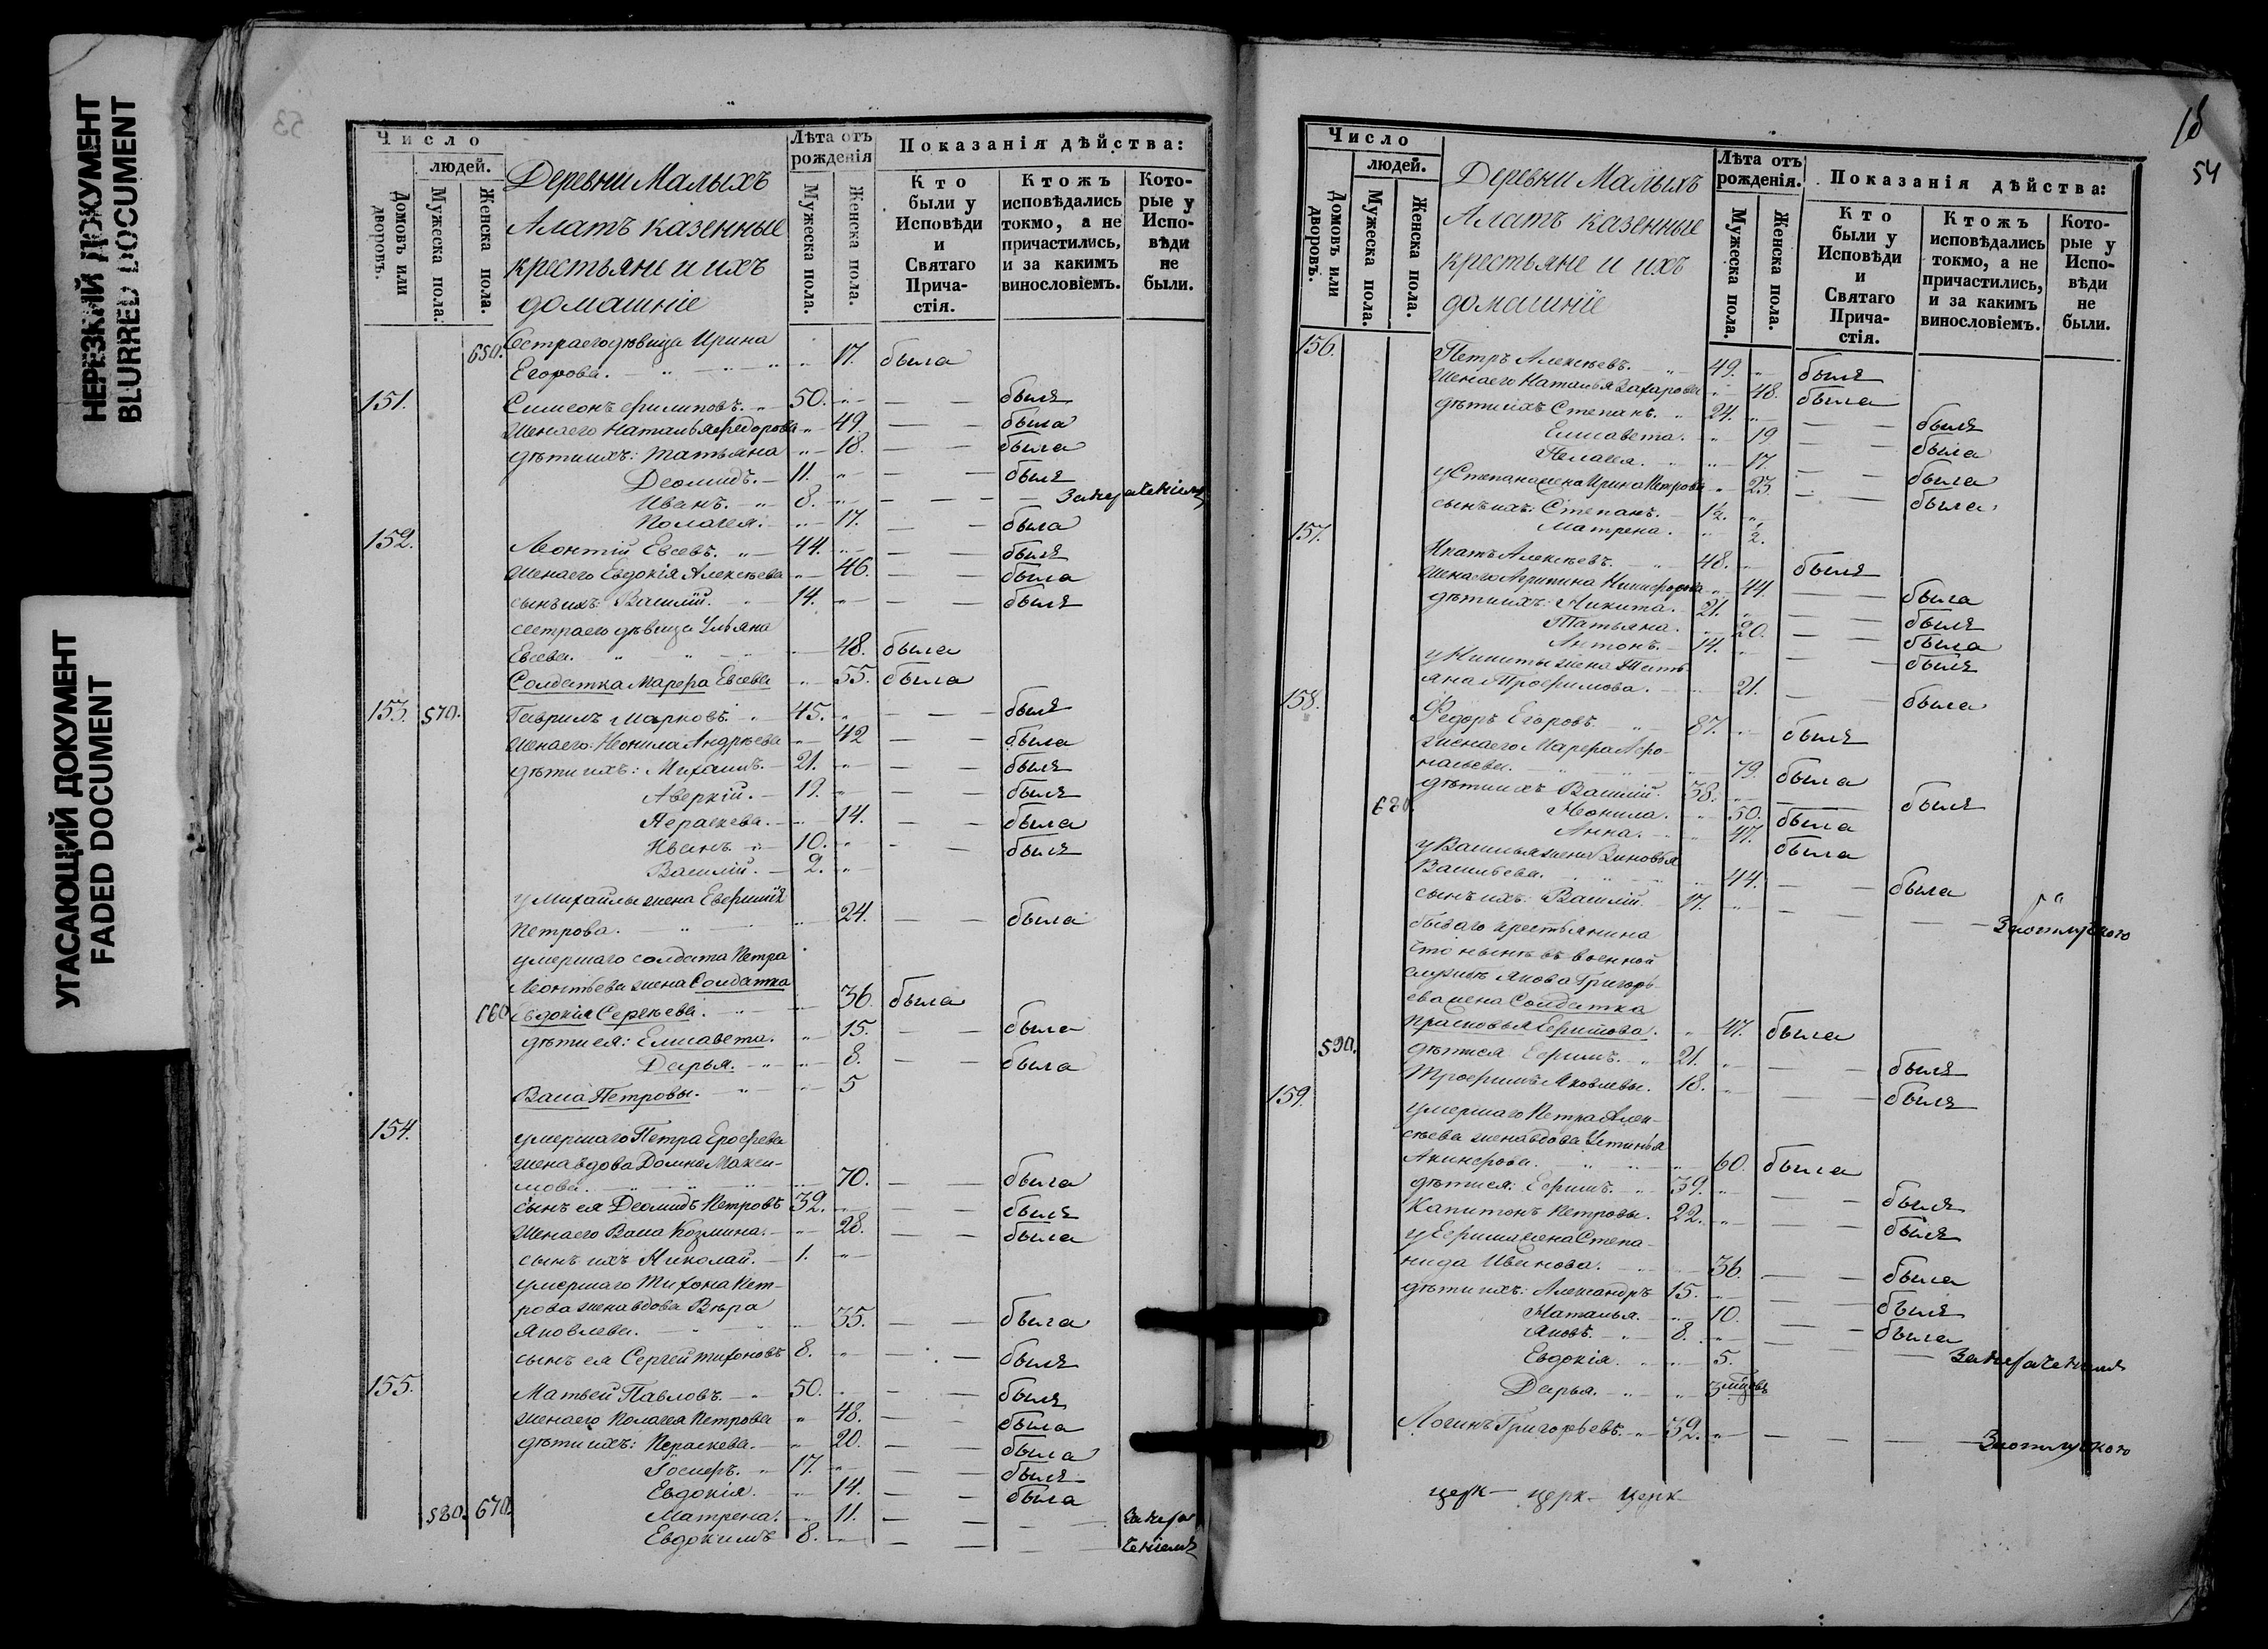 НЕРЕЗКИЙ ДОКУМЕНТ
BLURRED DOCUMENT
УГАСАЮЩИЙ ДОКУМЕНТ
FADED DOCUMENT
53
Число
Домовъ или дворовъ.
людей.
Мужеска пола.
Женска пола.
Деревни Малыхъ
Алатъ казенные
крестьяне и ихъ
домашніе
Лѣта отъ рожденія
Мужеска пола.
Женска пола.
Показанія дѣйства:
Кто были у Исповѣди и Святаго Прича-стія.
Ктожъ исповѣдались токмо, а не причастились, и за какимъ винословіемъ.
Кото-рые у Испо-вѣди не были.
650. Сестра его дѣвица Ирина
Егорова. 17. была
151. Симеонъ Филиповъ. 50. былъ
Жена его Наталья Федорова 49. была
дѣти ихъ: Татьяна 18. была
Деомидъ. 11. былъ
Иванъ. 8.
Полагея. 17. была
152. Леонтій Евсевъ. 44. былъ
Жена его Евдокія Алексѣева 46. была
сынъ ихъ: Василій. 14. былъ
сестра его дѣвица Ульяна
Евсева. 48. была
Солдатка Марфа Евсева 55. была
153. 570. Гаврилъ Марковъ. 45. былъ
Жена его: Неонила Андрѣева 42 была
дѣти ихъ: Михаилъ. 21. былъ
Аверкій. 19. былъ
Параскева. 14. была
Иванъ. 10. былъ
Василій. 2.
у Михайлы жена Евфимія
Петрова. 24. была
умершаго солдата Петра
Леонтьева жена Солдатка
660 Евдокія Сергѣева. 36. была
дѣти ея: Елисавета. 15. была
Дарья. 8. была
Васа Петровы. 5
154. умершаго Петра Ерофеева
жена вдова Домна Макси-
мова. 70. была
сынъ ея Деомидъ Петровъ 32. былъ
Жена его Васа Козмина. 28. была
сынъ ихъ Николай. 1.
умершаго Тихона Пет-
рова жена вдова Вѣра
Яковлева. 35. была
сынъ ея Сергей Тихоновъ 8. былъ
155. Матвей Павловъ. 50. былъ
жена его Полагея Петрова 48. была
дѣти ихъ: Параскева. 20. была
Іосифъ. 17. былъ
Евдокія. 14. была
580. 670. Матрена. 11.
Евдокимъ 8.
54
Число
Домовъ или дворовъ.
людей.
Мужеска пола.
Женска пола.
Деревни Малыхъ
Алатъ казенные
крестьяне и ихъ
домашніе
Лѣта отъ рожденія.
Мужеска пола.
Женска пола.
Показанія дѣйства:
Кто были у Исповѣди и Святаго Прича-стія.
Ктожъ исповѣдались токмо, а не причастились, и за какимъ винословіемъ.
Кото-рые у Испо-вѣди не были.
156. Петръ Алексѣевъ. 49. былъ
Жена его Наталья Захарова 48. была
дѣти ихъ Степанъ. 24. былъ
Елисавета. 19 была
Пелагея. 17. была
у Степана жена Ирина Петрова 23. была
сынъ ихъ: Степанъ. 1½.
Матрена. ½.
157. Ипатъ Алексѣевъ. 48. былъ
Жена его Агрипина Никифорова 44. была
дѣти ихъ: Никита. 21. былъ
Татьяна. 20. была
Антонъ. 14. былъ
у Никиты жена Тать
яна Трофимова. 21. была
158. Федоръ Егоровъ. 87. былъ
жена его Марфа Афо-
насьева. 79. была
дѣти ихъ Василій. 38. былъ
680 Неонила. 50. была
Анна. 47. была
у Василья жена Зиновья
Васильева. 44. была
сынъ ихъ: Василій. 17.
бываго крестьянина
что нынѣ въ военной
службѣ Якова Григорь-
ева жена Солдатка
Прасковья Ефимова. 47. была
590. дѣти ея Ефимъ. 21. былъ
Трофимъ Яковлевы. 18. былъ
159. умершаго Петра Алек-
сѣева жена вдова Устинья
Акинфова. 60. была
дѣти ея: Ефимъ. 39. былъ
Капитонъ Петровы. 22. былъ
у Ефима жена Степа-
нида Иванова. 36. была
дѣти ихъ: Александръ 15. былъ
Наталья. 10. была
Яковъ. 8.
Евдокія. 5.
Дарья. 3 мѣсяц
Логинъ Григорьевъ. 32.
церк- церк- церк-